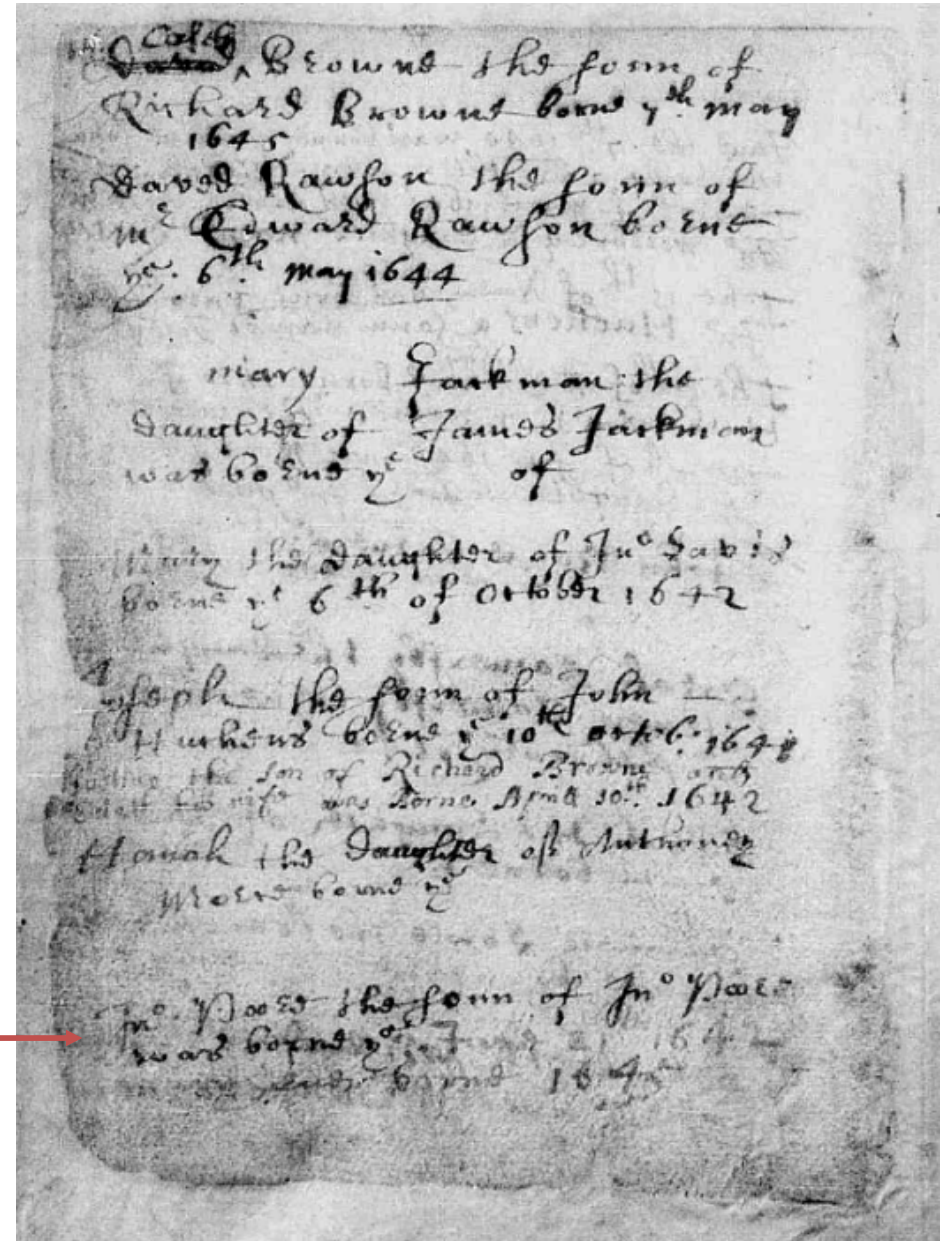 Caleb
David ^ Browne the sonn of
Richard Browne borne 7th may
1645
daved Rawson the sonn of
mr Edward Rawson borne
ye. 6th. may 1644
mary Jackman the
daughter of James Jackman
was borne ye of
Mary the daughter of Jno Davis
borne ye 6th of October 1642
Joseph the sonn of John
Huchens borne ye 10th octob: 164
the son of Richard Browne and
his wife was Borne Aprill 10th. 1642
Hanah the daughter of Anthoney
Morse borne ye
Jno. Poore the sonn of Jno Poore
was borne ye June 21 1642
borne 164